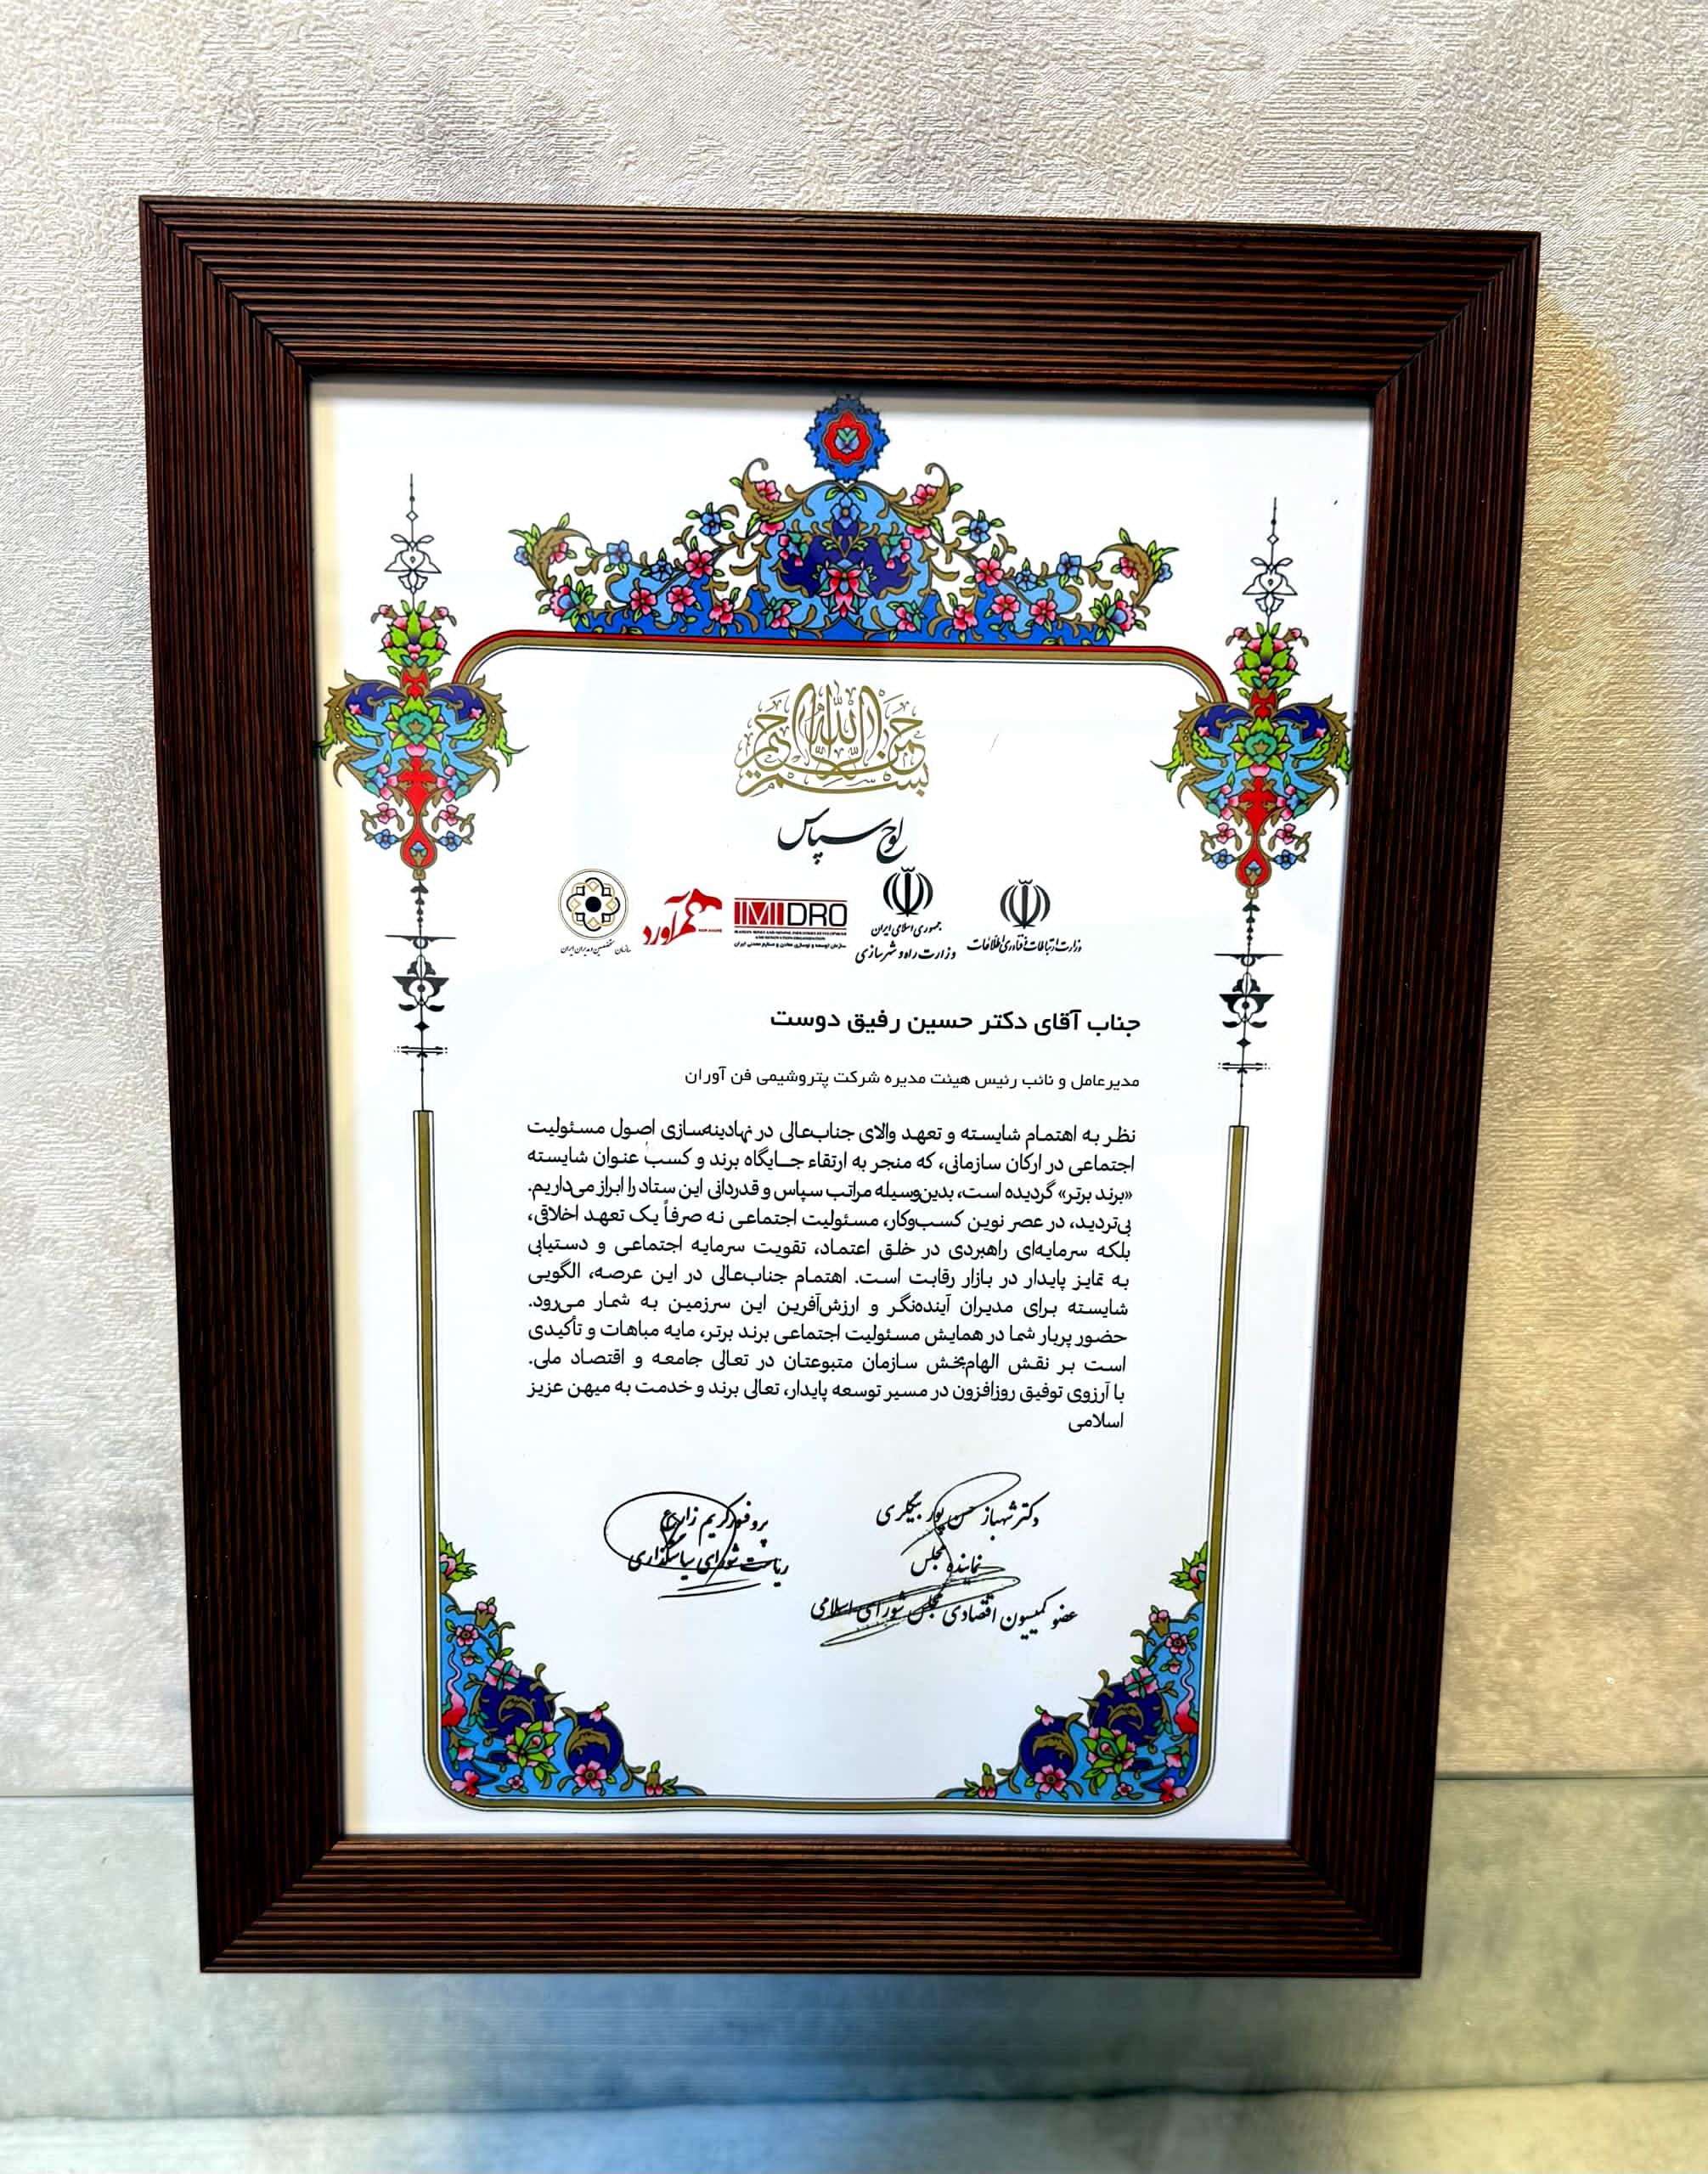 بسم الله الرحمن الرحیم
لوح سپاس
وزارت ارتباطات و فناوری اطلاعات
جمهوری اسلامی ایران
وزارت راه و شهرسازی
IMIDRO
IRANIAN MINES AND MINING INDUSTRIES DEVELOPMENT
AND RENOVATION ORGANIZATION
سازمان توسعه و نوسازی معادن و صنایع معدنی ایران
سازمان متخصصین و مدیران ایران
جناب آقای دکتر حسین رفیق دوست
مدیرعامل و نائب رئیس هیئت مدیره شرکت پتروشیمی فن آوران
نظر به اهتمام شایسته و تعهد والای جناب‌عالی در نهادینه‌سازی اصول مسئولیت
اجتماعی در ارکان سازمانی، که منجر به ارتقاء جایگاه برند و کسب عنوان شایسته
«برند برتر» گردیده است، بدین‌وسیله مراتب سپاس و قدردانی این ستاد را ابراز می‌داریم.
بی‌تردید، در عصر نوین کسب‌وکار، مسئولیت اجتماعی نه صرفاً یک تعهد اخلاقی،
بلکه سرمایه‌ای راهبردی در خلق اعتماد، تقویت سرمایه اجتماعی و دستیابی
به تمایز پایدار در بازار رقابت است. اهتمام جناب‌عالی در این عرصه، الگویی
شایسته برای مدیران آینده‌نگر و ارزش‌آفرین این سرزمین به شمار می‌رود.
حضور پربار شما در همایش مسئولیت اجتماعی برند برتر، مایه مباهات و تأکیدی
است بر نقش الهام‌بخش سازمان متبوعتان در تعالی جامعه و اقتصاد ملی.
با آرزوی توفیق روزافزون در مسیر توسعه پایدار، تعالی برند و خدمت به میهن عزیز
اسلامی
دکتر شهباز حسن پور بیگلری
نماینده مجلس
عضو کمیسیون اقتصادی مجلس شورای اسلامی
پروفسور کریم زارع
ریاست شورای سیاستگذاری